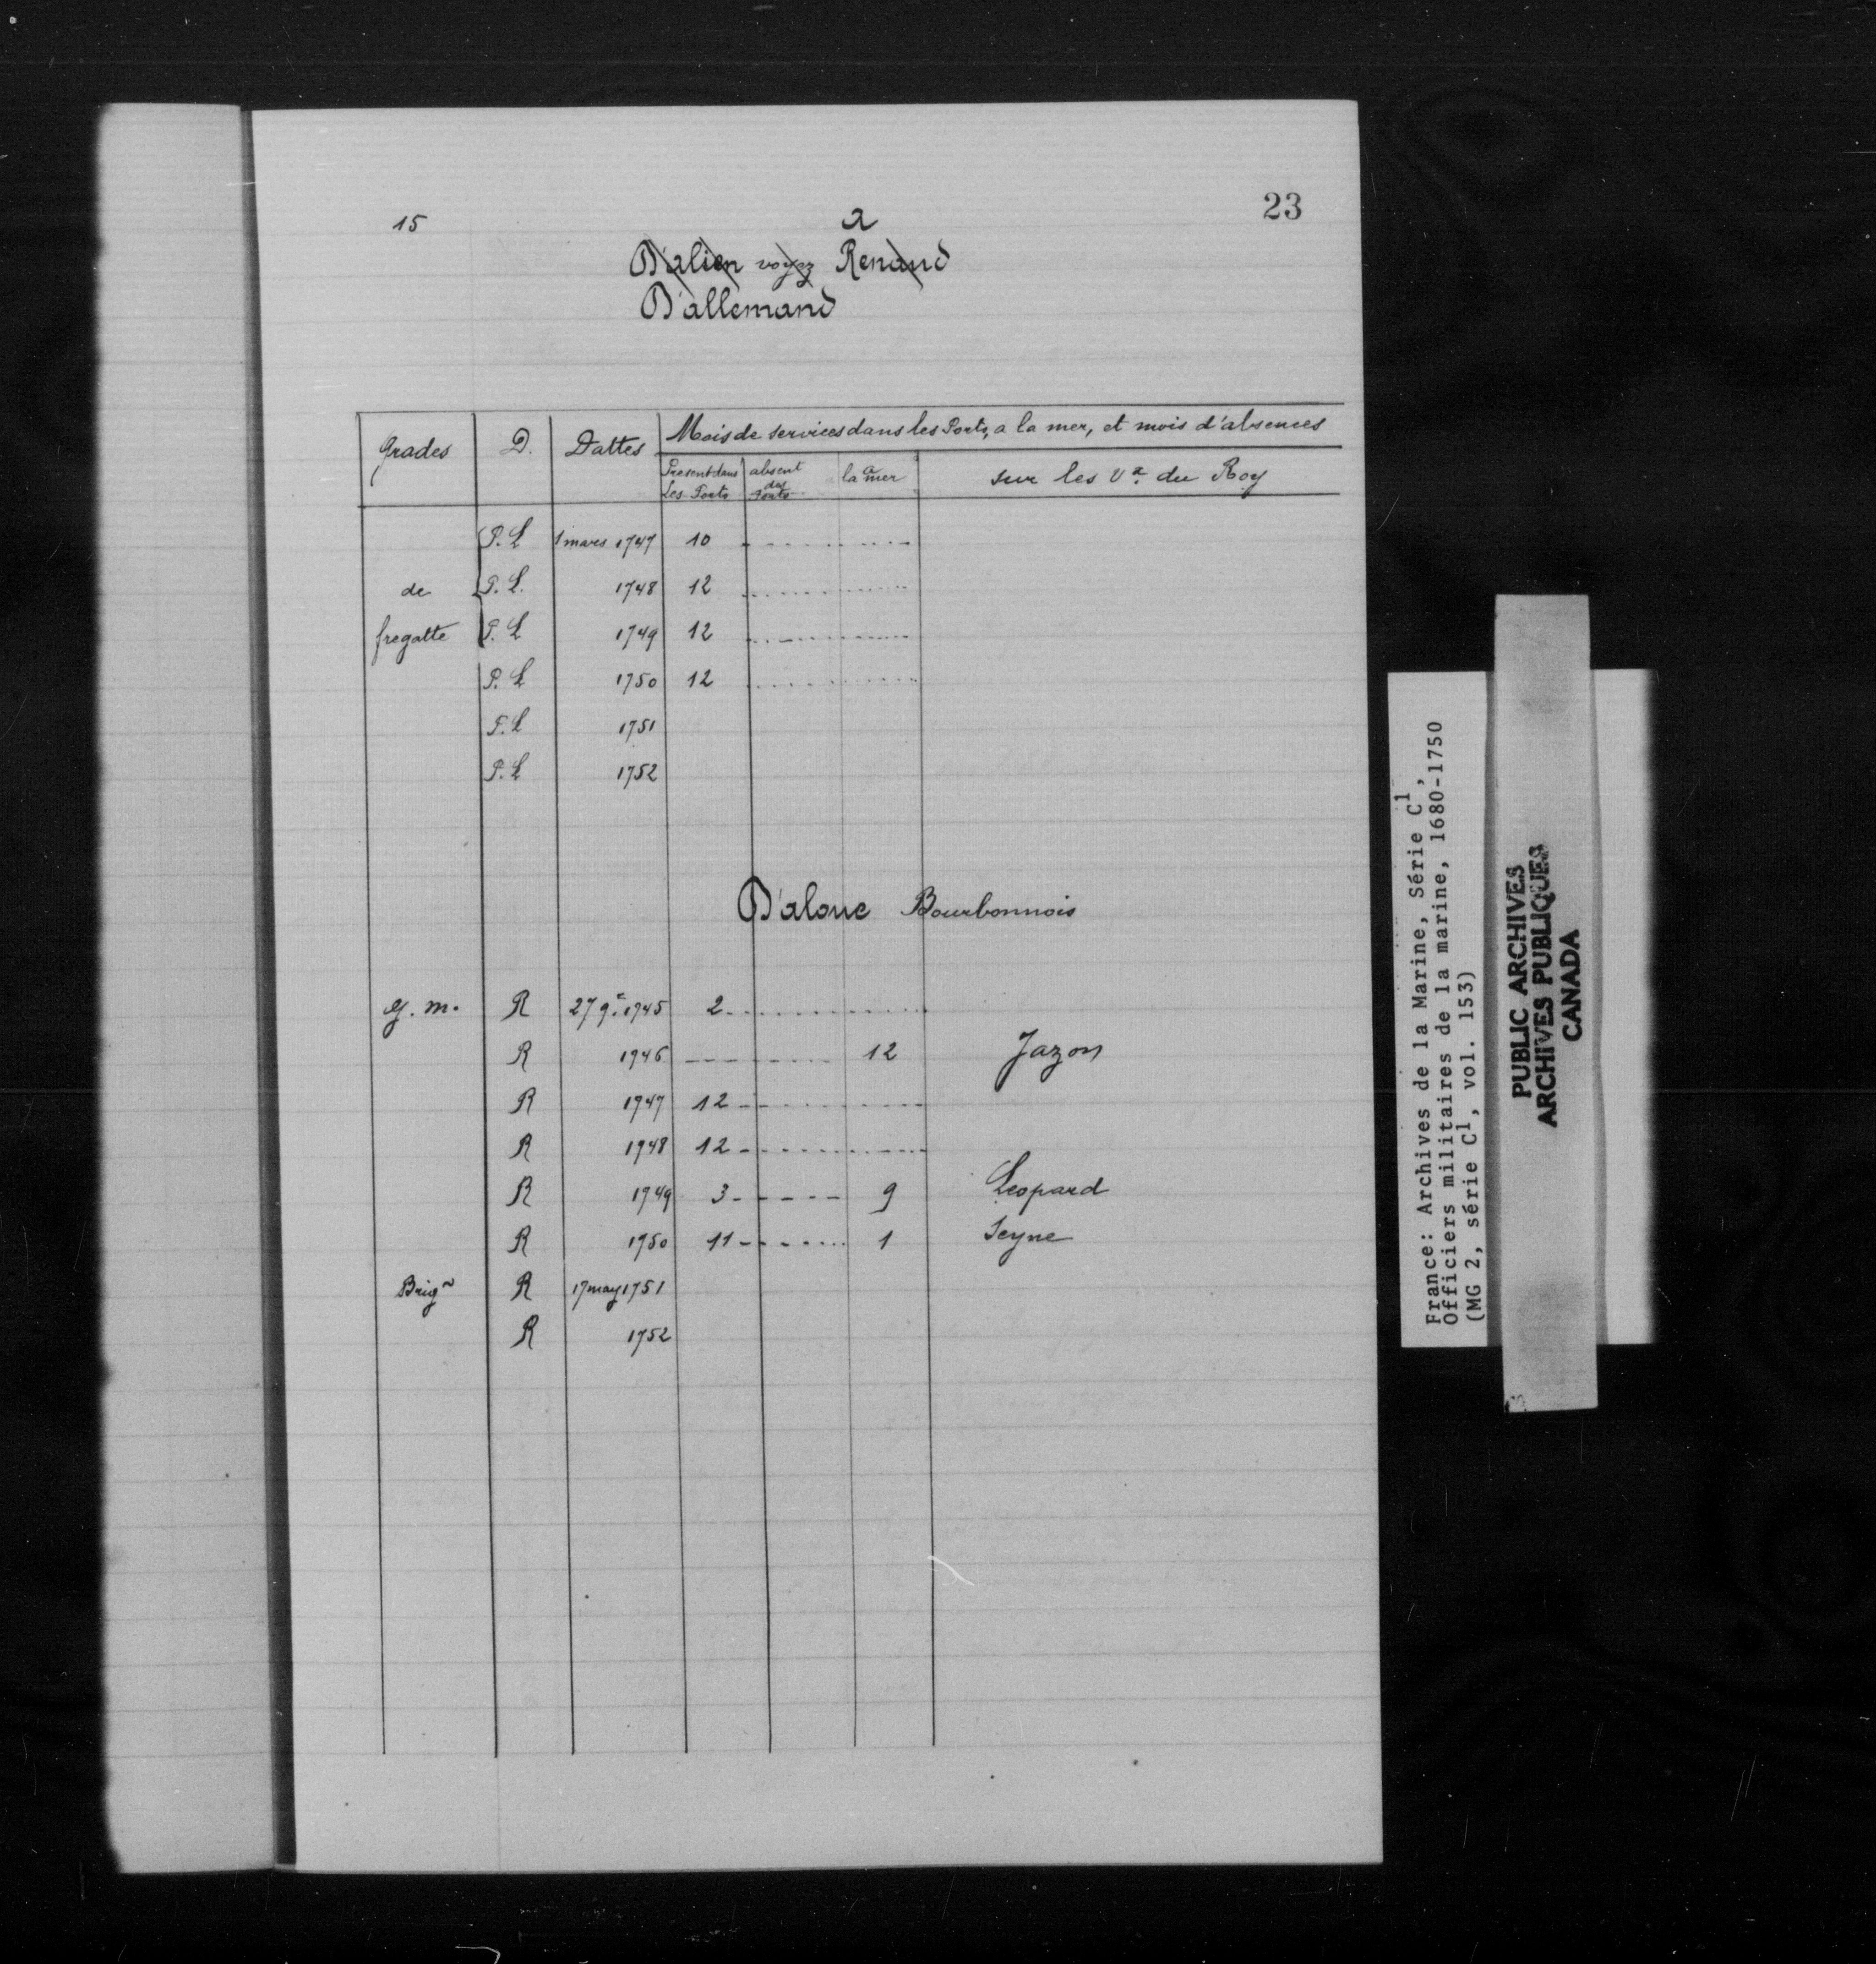 23
15
a
D'alien voyez Renaud
D'allemand
Grades D. Dattes Mois de services dans les Ports, a la mer, et mois d'absences
Present dans les Ports absent des Ports a la mer sur les Vx. du Roy
P. L 1 mars 1747 10
de P. L. 1748 12
fregatte P. L 1749 12
P. L 1750 12
P. L 1751
P. L 1752
D'aloue Bourbonnois
g. m. R 27 9re. 1745 2
R 1746 12 Jazon
R 1747 12
R 1748 12
R 1749 3 9 Leopard
R 1750 11 1 Seyne
Brigr R 17 may 1751
R 1752
France: Archives de la Marine, Série C1,
Officiers militaires de la marine, 1680-1750
(MG 2, série C1, vol. 153)
PUBLIC ARCHIVES
ARCHIVES PUBLIQUES
CANADA